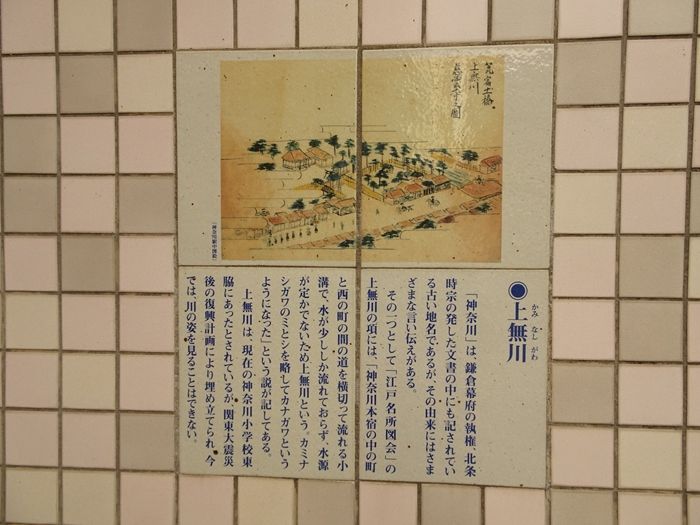 ◉上無川
かみ なし がわ
「神奈川」は、鎌倉幕府の執権 北条
時宗の発した文書の中にも記されてい
る古い地名であるが、その由来にはさま
ざまな言い伝えがある。
その一つとして「江戸名所図会」の
上無川の項には、「神奈川本宿の中の町
と西の町の間の道を横切って流れる小
溝で、水が少ししか流れておらず、水源
が定かでないため上無川という。カミナ
シガワのミとシを略してカナガワという
ようになった」という説が記してある。
上無川は、現在の神奈川小学校東
脇にあったとされているが、関東大震災
後の復興計画により埋め立てられ、今
では、川の姿を見ることはできない。
上無川